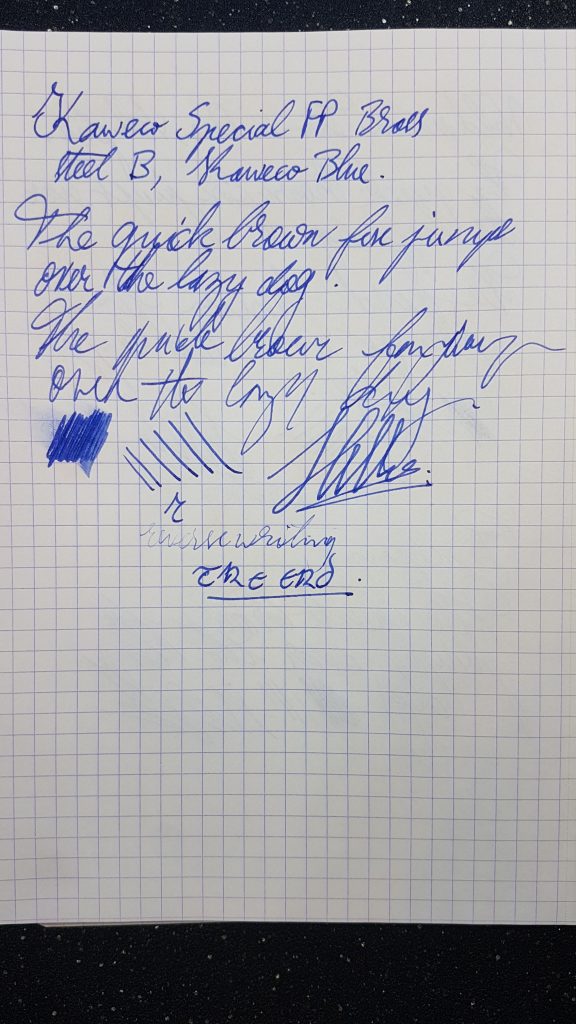 Kaweco Special FP Brass
steel B, Kaweco Blue.
The quick brown fox jumps
over the lazy dog.
The quick brown fox jumps
over the lazy dog
r
reverse writing
THE END.